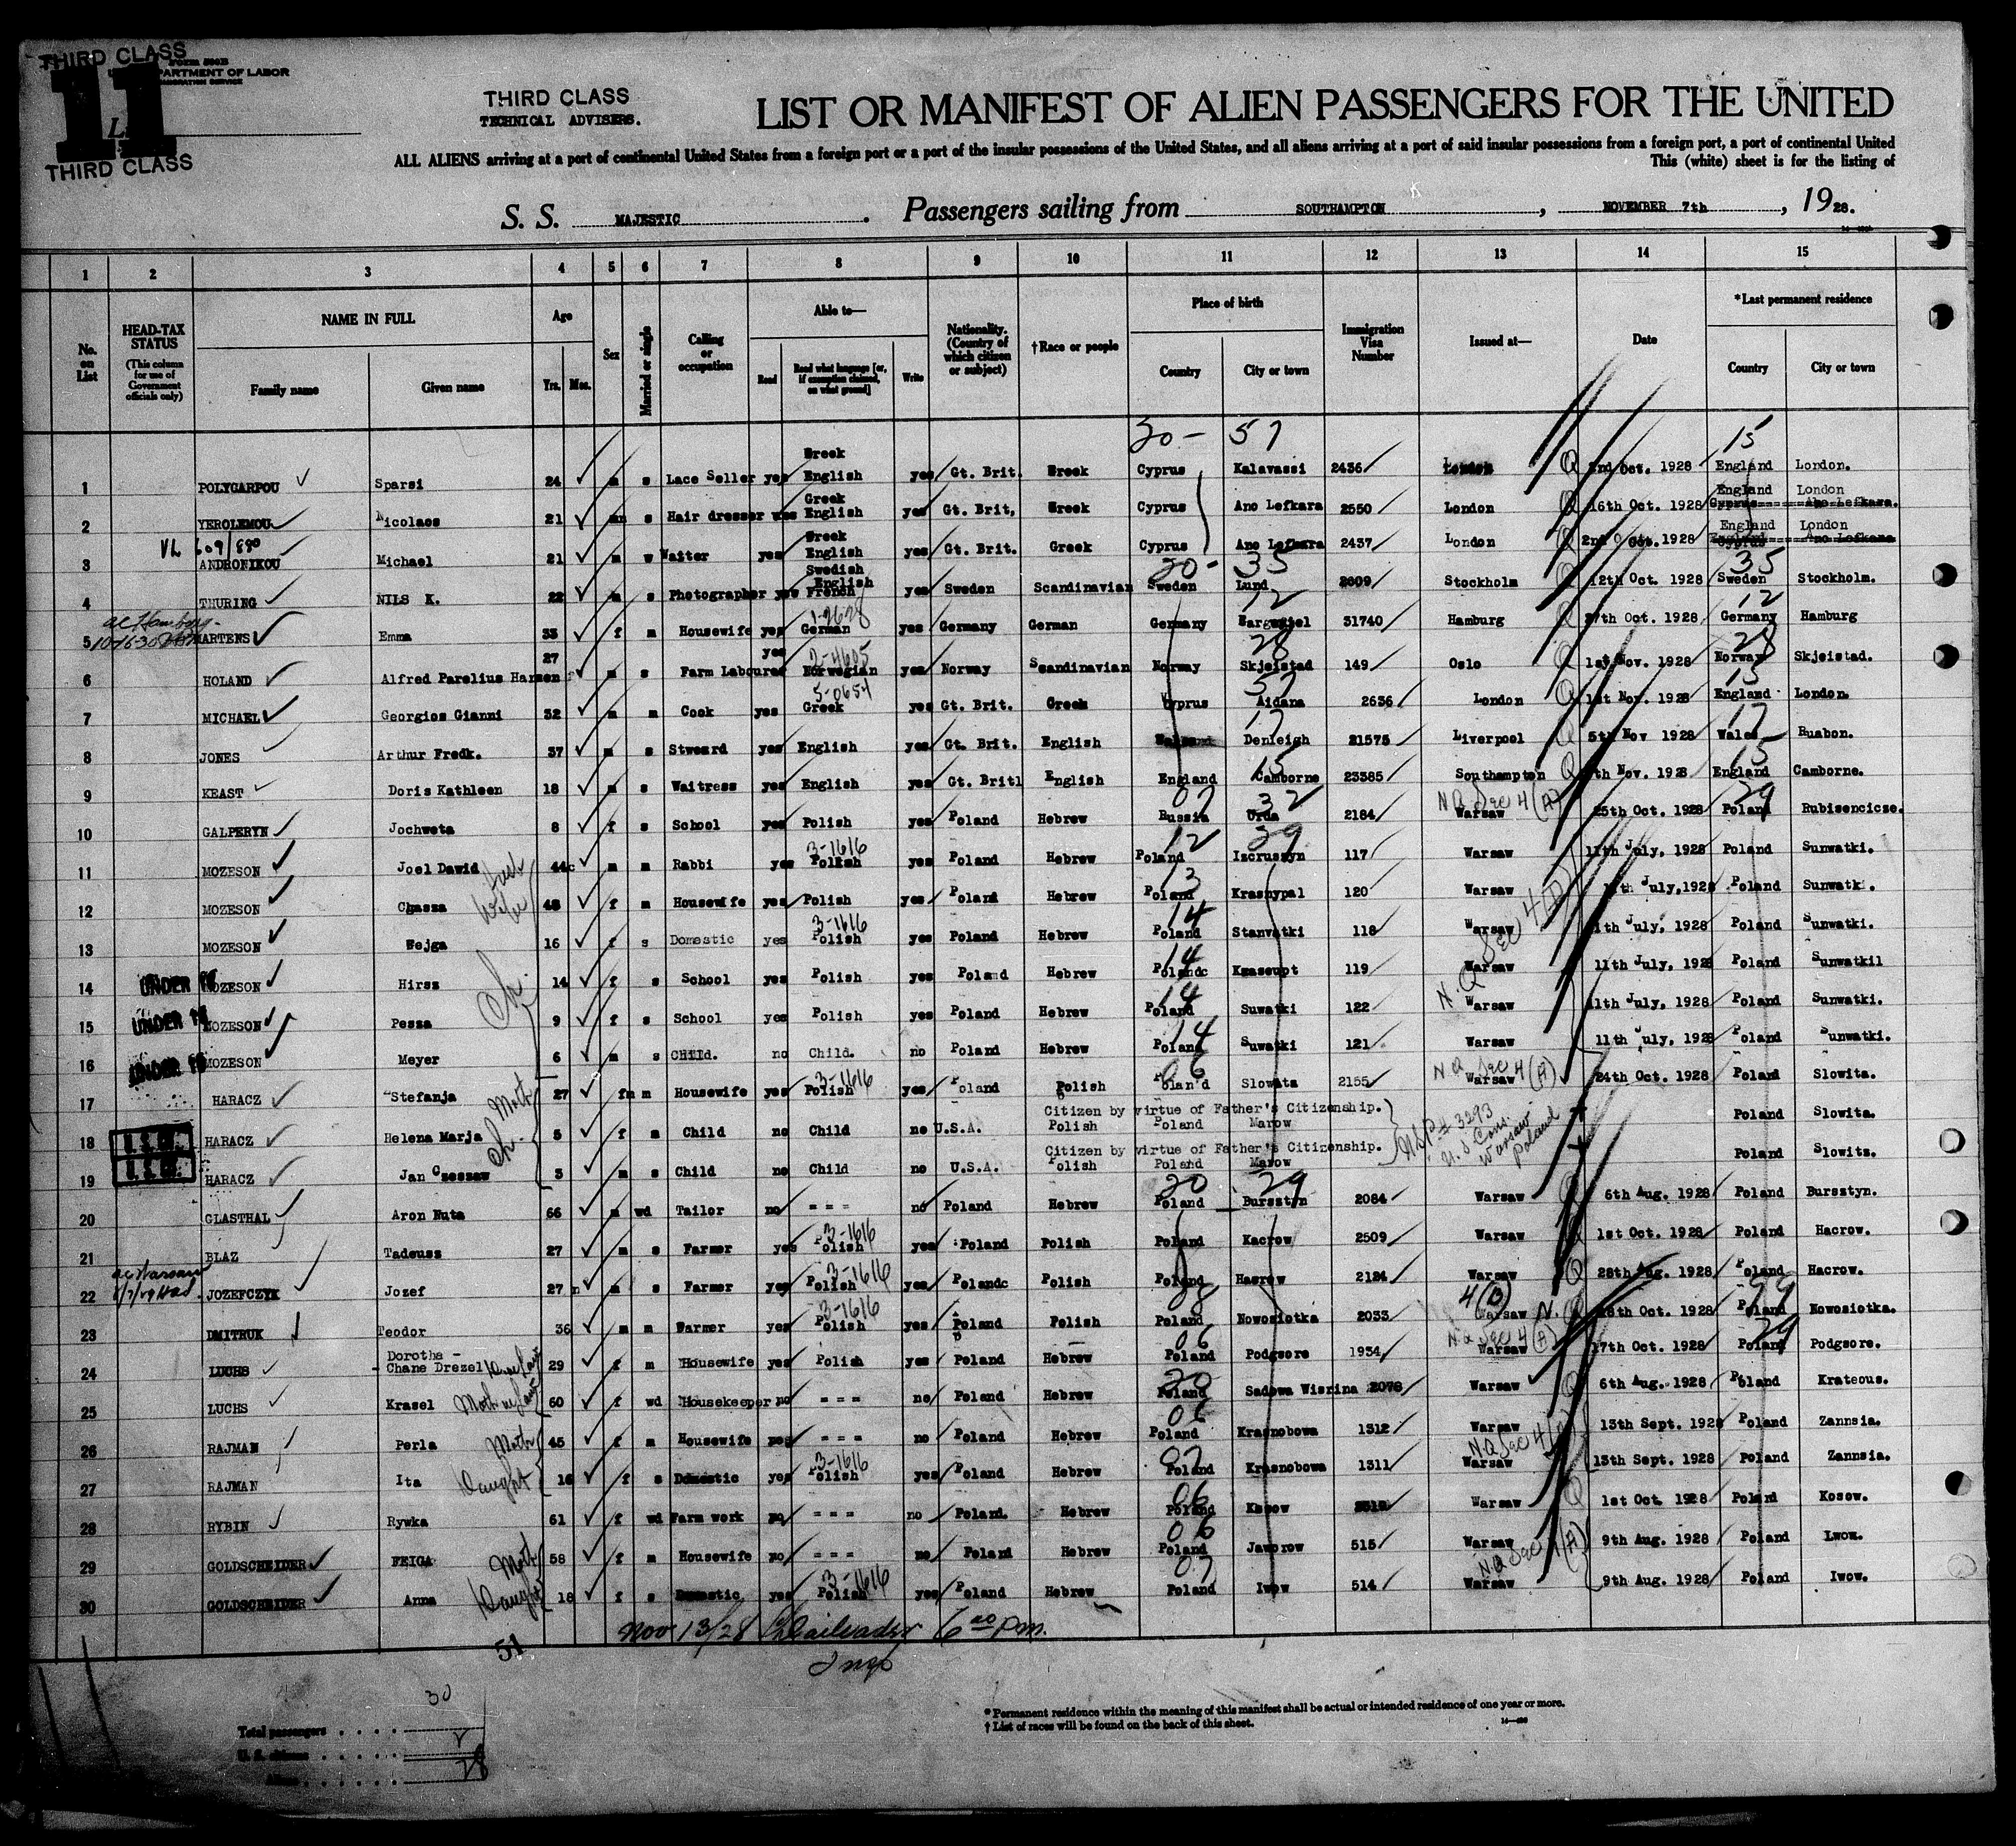 THIRD CLASS
11
FORM 500B
DEPARTMENT OF LABOR
IMMIGRATION SERVICE
THIRD CLASS
THIRD CLASS
TECHNICAL ADVISERS.
LIST OR MANIFEST OF ALIEN PASSENGERS FOR THE UNITED
ALL ALIENS arriving at a port of continental United States from a foreign port or a port of the insular possessions of the United States, and all aliens arriving at a port of said insular possessions from a foreign port, a port of continental United
This (white) sheet is for the listing of
S. S. MAJESTIC. Passengers sailing from SOUTHAMPTON, NOVEMBER 7th, 1928.
1 2 3 4 5 6 7 8 9 10 11 12 13 14 15
No. on List
HEAD-TAX STATUS (This column for use of Government officials only)
NAME IN FULL Family name Given name
Age Yrs. Mos.
Sex
Married or single
Calling or occupation
Able to— Read Read what language [or, if exemption claimed, on what ground] Write
Nationality. (Country of which citizen or subject)
†Race or people
Place of birth Country City or town
Immigration Visa Number
Issued at—
Date
*Last permanent residence Country City or town
30- 57 15
1 POLYCARPOU Sparsi 24 m s Lace Seller yes Greek English yes Gt. Brit. Greek Cyprus Kalavassi 2436 London 2nd Oct. 1928 England London.
2 YEROLEMOU Nicolaos 21 m s Hair dresser yes Greek English yes Gt. Brit, Greek Cyprus Ano Lefkara 2550 London 16th Oct. 1928 England London Cyprus Ano Lefkara.
VL 609/880
3 ANDRONIKOU Michael 21 m w Waiter yes Greek English yes Gt. Brit. Greek Cyprus Ano Lefkara 2437 London 2nd Oct. 1928 England London Cyprus Ano Lefkara
20- 35 35
4 THURING NILS K. 22 m s Photographer yes Swedish English French yes Sweden Scandinavian Sweden Lund 2609 Stockholm 12th Oct. 1928 Sweden Stockholm.
12 12
5 MARTENS Emma 33 f m Housewife yes German yes Germany German Germany 31740 Hamburg 27th Oct. 1928 Germany Hamburg
28 28
6 HOLAND Alfred Parelius Hansen 27 m s Farm Labourer yes 2-4605 Norwegian yes Norway Scandinavian Norway Skjeistad 149 Oslo 1st Nov. 1928 Norway Skjeistad.
57 15
7 MICHAEL Georgios Gianni 32 m m Cook yes 5-0654 Greek yes Gt. Brit. Greek Cyprus Aidana 2636 London 1st Nov. 1928 England London.
17 17
8 JONES Arthur Fredk. 37 m s Stweard yes English yes Gt. Brit. English Denleigh 21575 Liverpool 5th Nov 1928 Wales Ruabon.
15 15
9 KEAST Doris Kathleen 18 s Waitress yes English yes Gt. Britl English England Camborne 23385 Southampton Nov. 1928 England Camborne.
07 32 29
10 GALPERYN Jochweta 8 f s School yes Polish yes Poland Hebrew Russia Urda 2184 NQ Sec 4 (A) Warsaw 25th Oct. 1928 Poland Rubisencicze.
12 39
11 MOZESON Joel Dawid 44 m m Rabbi yes 3-1616 Polish yes Poland Hebrew Poland Izcruszyn 117 Warsaw 11th July, 1928 Poland Sunwatki.
13
12 MOZESON Chasza Wife 48 f m Housewife yes Polish yes Poland Hebrew Poland Krasnypal 120 Warsaw 11th July,1928 Poland Sunwatki.
14
13 MOZESON Wejga 16 f s Domestic yes 3-1616 Polish yes Poland Hebrew Poland Stanvatki 118 Warsaw 11th July, 1928 Poland Sunwatki.
14
14 UNDER 16 MOZESON Hirsz 14 f s School yes Polish yes Poland Hebrew Polandc Knaseupt 119 Warsaw 11th July, 1928 Poland Sunwatkil
14
15 UNDER 16 MOZESON Pesza 9 f s School yes Polish yes Poland Hebrew Poland Suwatki 122 Warsaw 11th July, 1928 Poland Sunwatki.
14
16 UNDER 16 MOZESON Meyer 6 m s CHild. no Child. no Poland Hebrew Poland Suwatki 121 Warsaw 11th July, 1928 Poland Sunwatki.
06
17 HARACZ Stefanja Moth 27 fm m Housewife yes 3-1616 Polish yes Poland Polish Poland Slowata 2155 NQ Sec 4 (A) Warsaw 24th Oct. 1928 Poland Slowita.
Citizen by virtue of Father's Citizenship.
18 U.S.C. HARACZ Helena Marja Ch. 5 f m Child no Child no U.S.A. Polish Poland Marow Poland Slowita.
P# 3293 U.S. Cons. Warsaw Poland
Citizen by virtue of Father's Citizenship.
19 U.S.C. HARACZ Jan Czeszaw 3 m s Child no Child no U.S.A. Polish Poland Marow Poland Slowits.
20 29
20 GLASTHAL Aron Nuta 66 m wd Tailor no = = = no Poland Hebrew Poland Bursstyn 2084 Warsaw 6th Aug. 1928 Poland Bursstyn.
21 BLAZ Tadeusz 27 m s Farmer yes 3-1616 Polish yes Poland Polish Poland Kacrow 2509 Warsaw 1st Oct. 1928 Poland Hacrow.
22 JOZEFCZYK Jozef 27 m s Farmer yes 3-1616 Polish yes Polandc Polish Poland Hacrow 2124 Warsaw 28th Aug. 1928 Poland Hacrow.
08
23 DMITRUK Teodor 36 m m Warmer yes 3-1616 Polish yes Poland Polish Poland Nowosiotka 2033 4(B) Warsaw 16th Oct. 1928 Poland Nowosiotka.
06 29
24 LUCHS Dorotha - Chane Drezel 29 f m Housewife yes Polish yes Poland Hebrew Poland Podgsore 1934 NQ Sec 4 (A) Warsaw 17th Oct. 1928 Poland Podgsore.
20
25 LUCHS Krasel Moth in law 60 f wd Housekeeper no = = = no Poland Hebrew Poland Sadowa Wisrina 2078 Warsaw 6th Aug. 1928 Poland Krateous.
06
26 RAJMAN Perla Moth 45 f m Housewife = = = no Poland Hebrew Poland Krasnobowa 1312 Warsaw 13th Sept. 1928 Poland Zannsia.
07
27 RAJMAN Ita Daught 16 f s Domestic yes 3-1616 Polish yes Poland Hebrew Poland Krasnobowa 1311 NQ Sec 4 Warsaw 13th Sept. 1928 Poland Zannsia.
06
28 RYBIN Rywka 61 f wd Farm work no = = = no Poland. Hebrew Poland Kosow Warsaw 1st Oct. 1928 Poland Kosow.
06
29 GOLDSCHEIDER FEIGA Moth 58 f m Housewife no = = = no Poland Hebrew Poland Jaworow 515 Warsaw 9th Aug. 1928 Poland Lwow.
07
30 GOLDSCHEIDER Anna Daught 18 f s Domestic yes 3-1616 Polish yes Poland Hebrew Poland Iwow 514 Warsaw 9th Aug. 1928 Poland Iwow.
51
Nov 13/28 6 00 P.m.
Insp
*Permanent residence within the meaning of this manifest shall be actual or intended residence of one year or more.
†List of races will be found on the back of this sheet.
Total passengers 30
U. S. citizens 2
Aliens 28